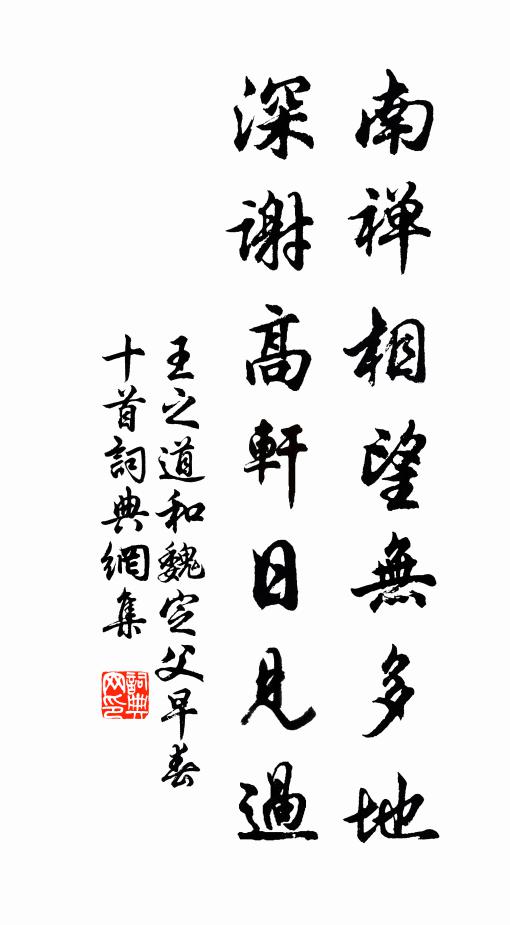 南禅相望無多地
深谢高軒日見過
王之道和魏定父早春
十首詞典網集
詞典网印